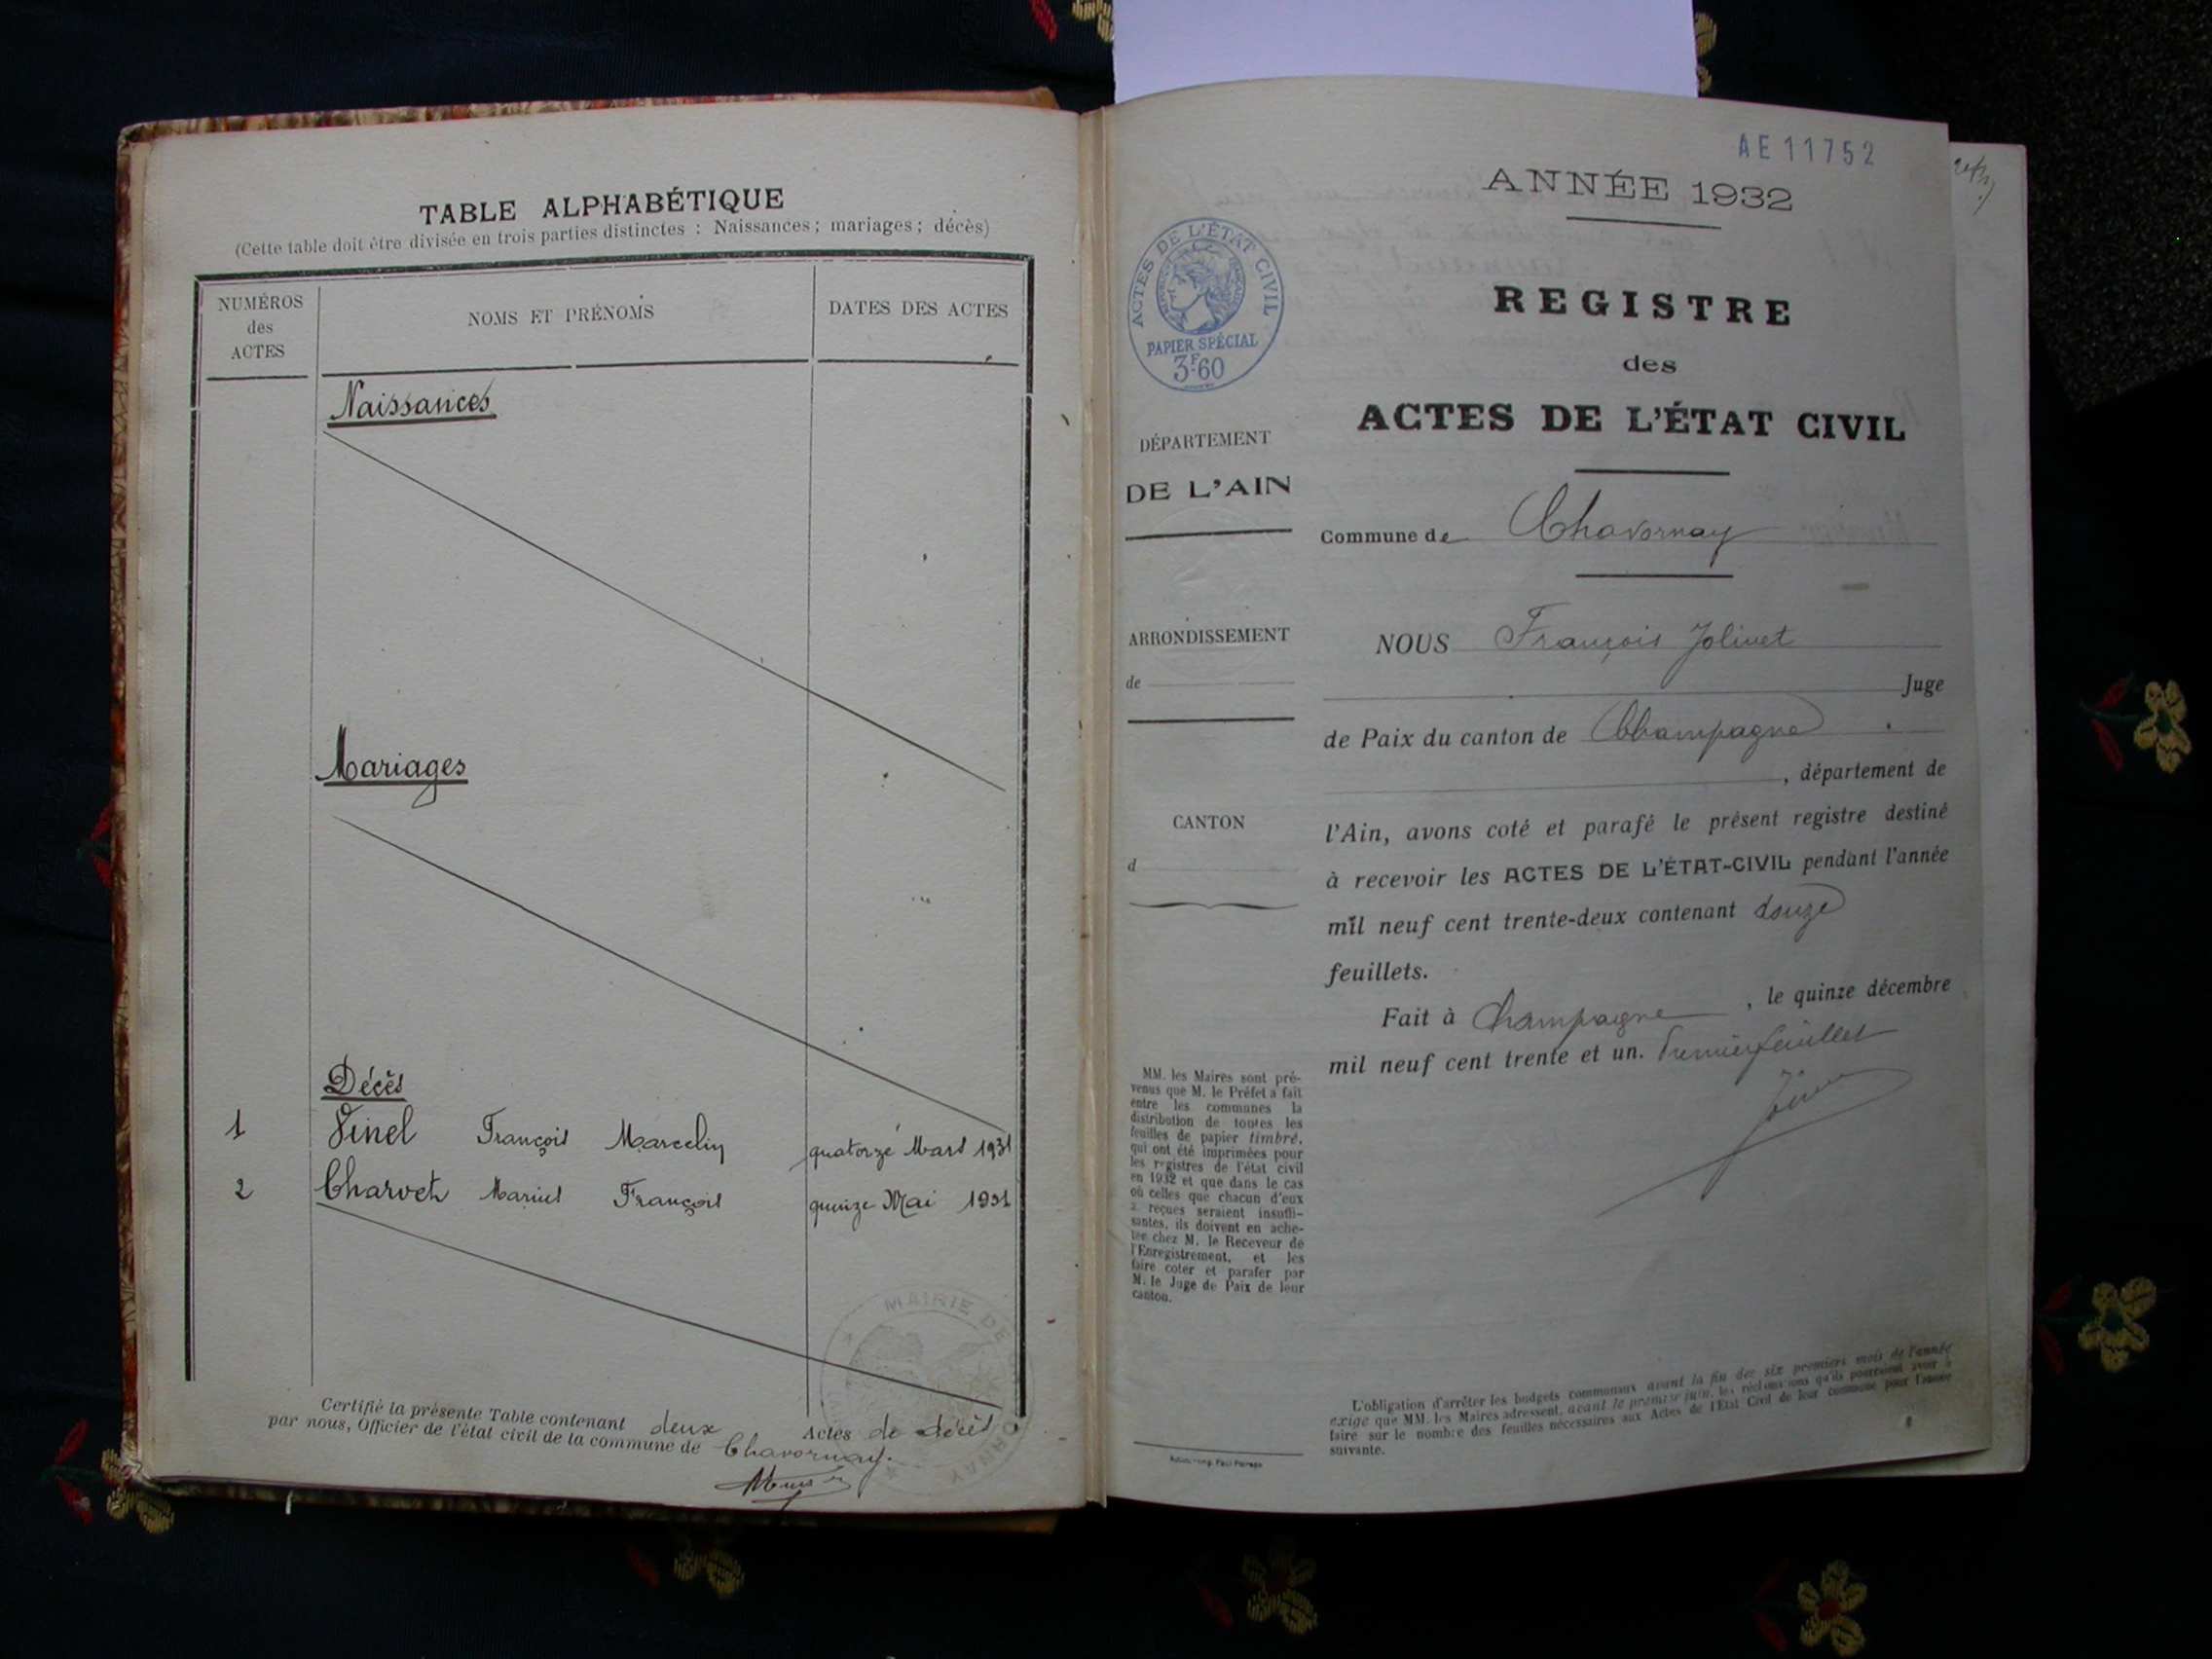 TABLE ALPHABÉTIQUE
(Cette table doit être divisée en trois parties distinctes : Naissances ; mariages ; décès)
NUMÉROS
des
ACTES
NOMS ET PRÉNOMS
DATES DES ACTES
Naissances
Mariages
Décès
1 Vinel François Marcelin quatorze Mars 1931
2 Charvet Marius François quinze Mai 1931
Certifié la présente Table contenant deux Actes de décès
par nous, Officier de l'état civil de la commune de Chavornay.
MAIRIE DE
AE 11752
ANNÉE 1932
ACTES DE L'ÉTAT CIVIL
PAPIER SPÉCIAL
3F.60
REGISTRE
des
ACTES DE L'ÉTAT CIVIL
DÉPARTEMENT
DE L'AIN
Commune de Chavornay
ARRONDISSEMENT
de
NOUS François Jolivet
Juge
de Paix du canton de Champagne
, département de
CANTON
d
l'Ain, avons coté et parafé le présent registre destiné
à recevoir les ACTES DE L'ÉTAT-CIVIL pendant l'année
mil neuf cent trente-deux contenant douze
feuillets.
Fait à Champagne, le quinze décembre
mil neuf cent trente et un. Premier feuillet
MM. les Maires sont pré-
venus que M. le Préfet a fait
entre les communes la
distribution de toutes les
feuilles de papier timbré,
qui ont été imprimées pour
les registres de l'état civil
en 1932 et que dans le cas
où celles que chacun d'eux
a reçues seraient insuffi-
santes, ils doivent en ache-
ter chez M. le Receveur de
l'Enregistrement, et les
faire coter et parafer par
M. le Juge de Paix de leur
canton.
L'obligation d'arrêter les budgets communaux avant la fin des six premiers mois de l'année
exige que MM. les Maires adressent, avant le premier juin, les réclamations qu'ils pourraient avoir à
faire sur le nombre des feuilles nécessaires aux Actes de l'État Civil de leur commune pour l'année
suivante.